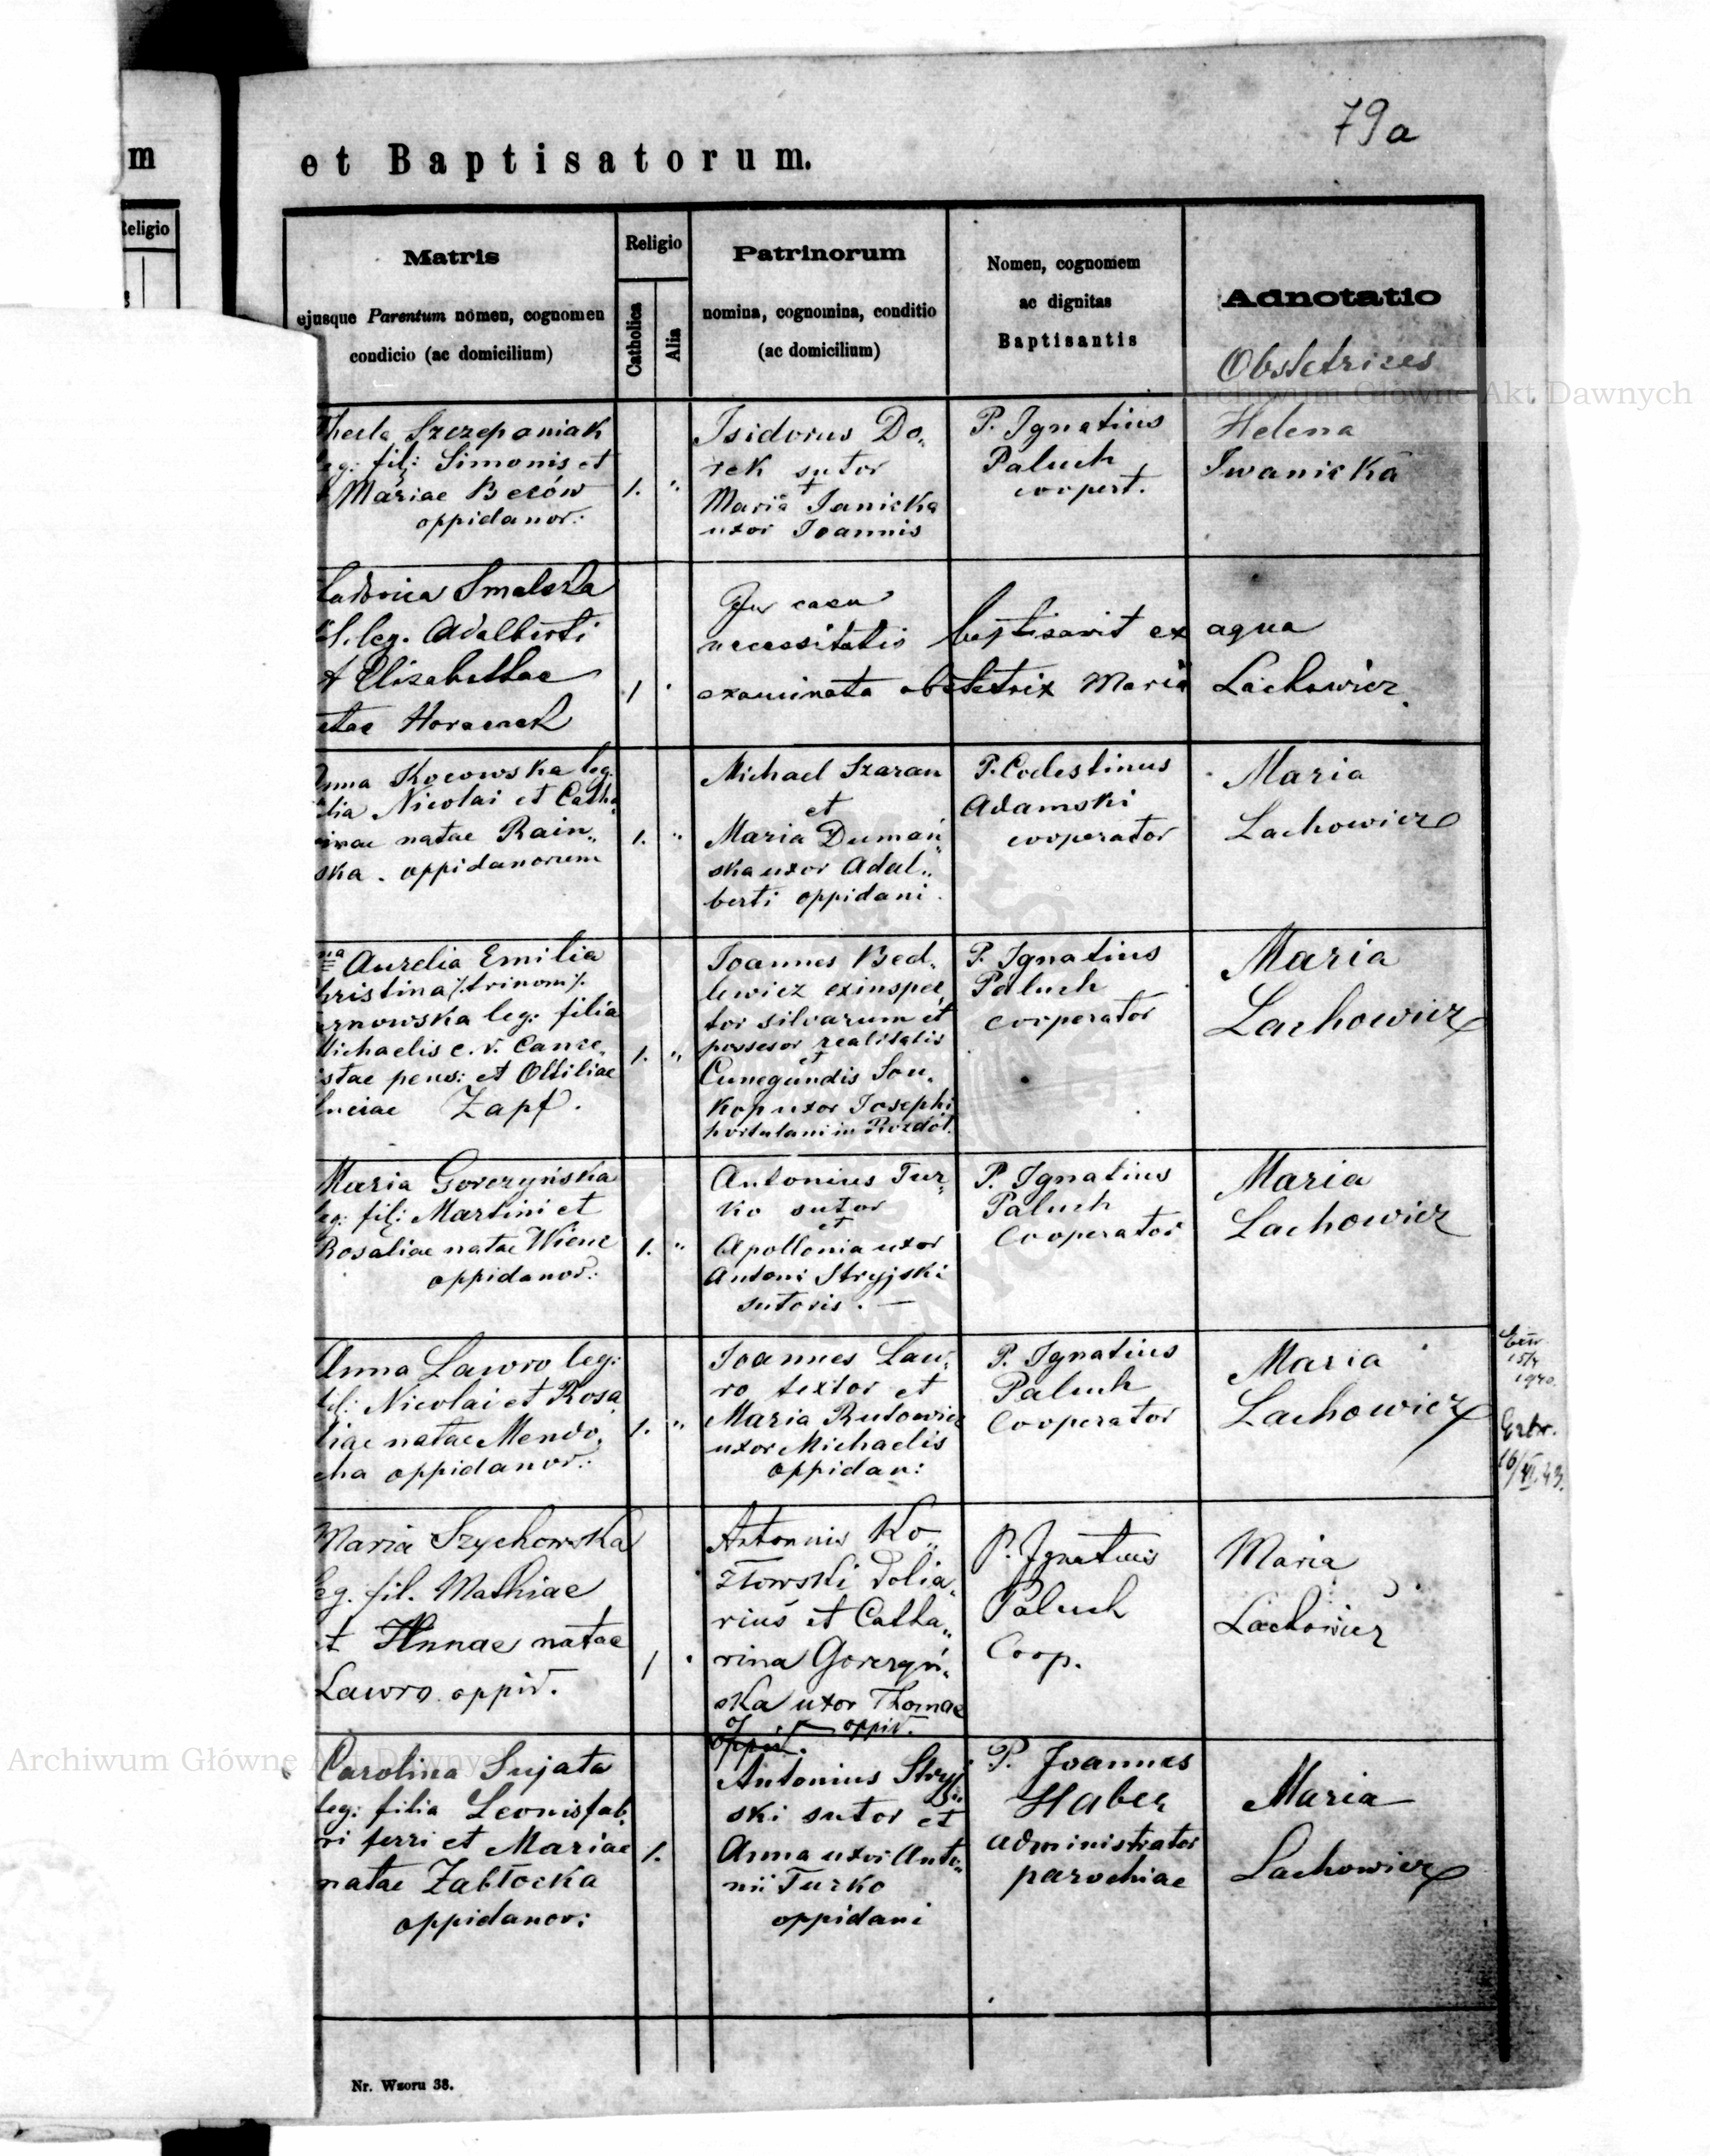 79a
m
et Baptisatorum.
Religio
Matris
ejusque Parentum nomen, cognomen
condicio (ac domicilium)
Religio
Catholica
Alia
Patrinorum
nomina, cognomina, conditio
(ac domicilium)
Nomen, cognomem
ac dignitas
Baptisantis
Adnotatio
Obstetrices
Archiwum Główne Akt Dawnych
Thecla Szczepaniak
leg: fil: Simonis et
Mariae Beców
oppidanor:
1. "
Isidorus Do„
rek sutor
Maria Janicka
uxor Joannis
P. Ignatius
Paluch
coopert.
Helena
Iwanicka
Ludovica Smalska
fil. leg. Adalberti
et Elisabethae
natae
1
In casu
necessitatis baptisavit ex aqua
examinata obstetrix Maria Lachowicz.
Anna Kocowska leg.
filia Nicolai et Catha
rinae natae Rain„
ska. oppidanorum
1. "
Michael Szaran
et
Maria Dumań„
ska uxor Adal„
berti oppidani.
P. Coelestinus
Adamski
cooperator
Maria
Lachowicz
Aurelia Emilia
Christina /:trinom:/
rnowska leg: filia
Michaelis c. r. Cance„
listae pens: et Ottiliae
Luciae Zapf.
1. "
Joannes Bed„
lewicz exinspec„
tor silvarum et
possesor realitatis
et
Cunegundis Sou„
kop uxor Josephi
hortulani in Rozdół.
P. Ignatius
Paluch
cooperator
Maria
Lachowicz
Maria Gorczyńska
leg: fil: Martini et
Rosaliae natae Wienc
oppidanor.:
1. "
Antonius Tur„
ko sutor
et
Apollonia uxor
Antoni Stryjski
sutoris. —
P. Ignatius
Paluch
Cooperator
Maria
Lachowicz
Anna Lawro leg:
fil: Nicolai et Rosa
liae natae Mendo„
cha oppidanor.:
1. "
Joannes Law„
ro textor et
Maria Rudowicz
uxor Michaelis
oppidan:
P. Ignatius
Paluch
Cooperator
Maria
Lachowicz
Extr.
16/VI.43.
Maria Szychowska
leg. fil. Mathiae
et Annae natae
Lawro oppid.
1
Antonius Ko„
złowski dolia„
rius et Catha„
rina Gorczyń„
ska uxor Thomae
oppid.
P. Ignatius
Paluch
Coop.
Maria
Lachowicz
Archiwum Główne Akt Dawnych
Carolina Sujata
leg: filia Leonis fab„
ri ferri et Mariae
natae Zabłocka
oppidanor:
1.
Antonius Stryj
ski sutor et
Anna uxor Anto„
nii Turko
oppidani
P. Joannes
Haber
administrator
parochiae
Maria
Lachowicz
Nr. Wzoru 38.